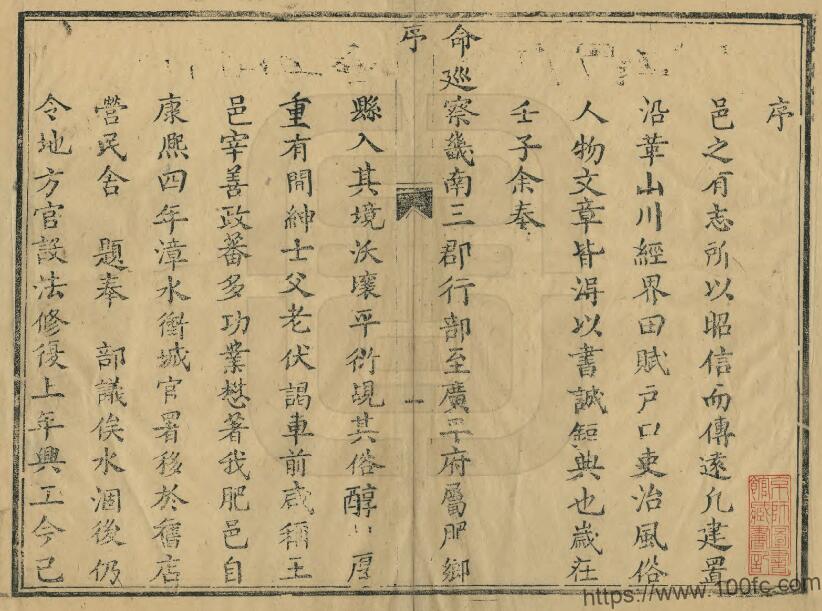 序
邑之有志所以昭信而傳遠凡建置
沿革山川經界田賦戶口吏治風俗
人物文章皆淂以書誠鉅典也歲在
壬子余奉
命廵察畿南三郡行部至廣平府屬肥鄉
序
一
縣入其境沃壤平衍覘其俗醇厚
重有間紳士父老伏謁車前咸稱王
邑宰善政蕃多功業懋著我肥邑自
康熙四年漳水衝城官署移於舊店
營民舍 題奉 部議俟水涸後仍
令地方官設法修復上年興工今已
https://www.100fc.com